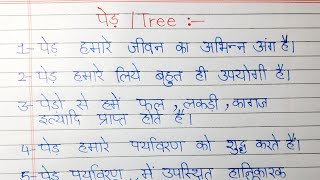 पेड़ | Tree :-
1- पेड़ हमारे जीवन का अभिन्न अंग है।
2- पेड़ हमारे लिये बहुत ही उपयोगी है।
3- पेड़ो से हमें फल, लकड़ी, कागज
इत्यादि प्राप्त होते है।
4- पेड़ हमारे पर्यावरण को शुद्ध करते है।
5- पेड़ पर्यावरण में उपस्थित हानिकारक